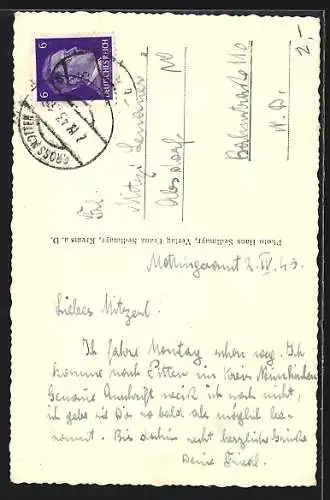 2,-
6 DEUTSCHES REICH 6
GROSS MOTTEN
Frl.
Absdorf
Bahnstraße 110
N.D.
Photo Hans Sedlmayr, Verlag Franz Sedlmayr, Krems a. D.
2. IV. 43
Liebes Mitzerl.
Ich fahre Montag schon weg. Ich
komme nach Pitten im Kreis Neunkirchen
Genaue Anschrift weiß ich noch nicht,
ich gebe sie Dir so bald als möglich be-
kannt. Bis dahin recht herzliche Grüße
Deine Friedl.